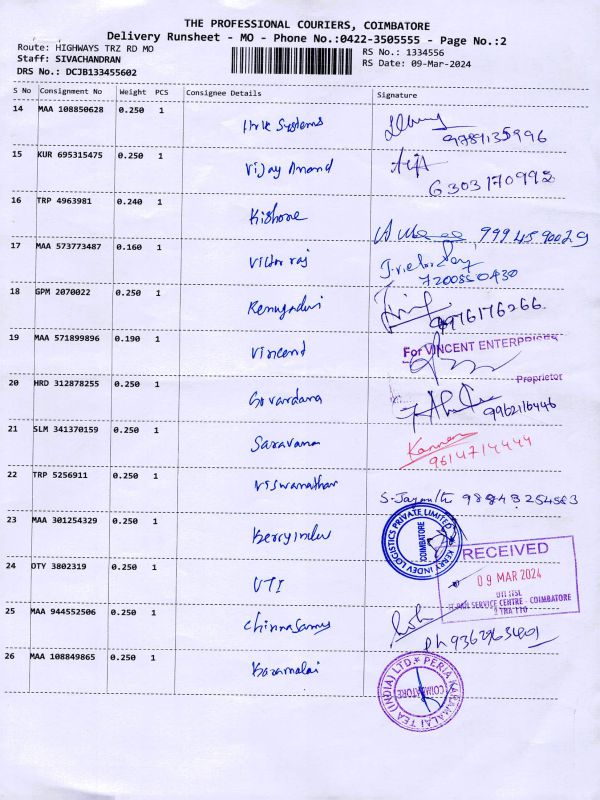 THE PROFESSIONAL COURIERS, COIMBATORE
Delivery Runsheet - MO - Phone No.:0422-3505555 - Page No.:2
Route: HIGHWAYS TRZ RD MO
RS No.: 1334556
Staff: SIVACHANDRAN
RS Date: 09-Mar-2024
DRS No.: DCJB133455602
S No Consignment No Weight PCS Consignee Details Signature
14 MAA 108850628 0.250 1 Systems
9789135996
15 KUR 695315475 0.250 1 Vijay Anand
6303170992
16 TRP 4963981 0.240 1 Kishore
9994590029
17 MAA 573773487 0.160 1 Victor raj
7200850430
18 GPM 2070022 0.250 1 Renugadevi
9976176266
19 MAA 571899896 0.190 1 Vincend
For VINCENT ENTERPRISES
Proprietor
20 HRD 312878255 0.250 1 Govardana
9962116446
21 SLM 341370159 0.250 1 Saravana
Kannan
9614714444
22 TRP 5256911 0.250 1 Viswanathan
S. Jayanthi 98843254563
23 MAA 301254329 0.250 1 Kerry Indev
KERRY INDEV LOGISTICS PRIVATE LIMITED
COIMBATORE
24 OTY 3802319 0.250 1 UTI
RECEIVED
09 MAR 2024
UTI ITSL
PAN SERVICE CENTRE - COIMBATORE
25 MAA 944552506 0.250 1 Chinnasamy
Ph 9362963401
26 MAA 108849865 0.250 1 Karamalai
PERIA KARAMALAI TEA (INDIA) LTD.
COIMBATORE